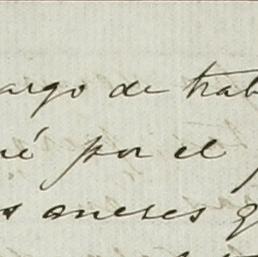 argo de trab
é por el
s meses q